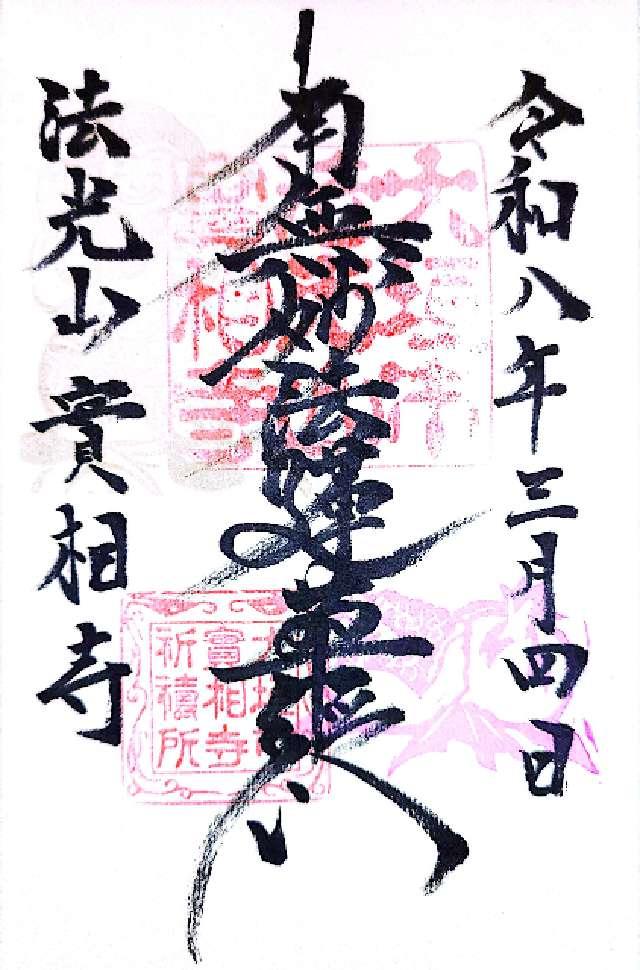 令和八年三月四日
南無妙法蓮華経
法光山 實相寺
實相寺
祈禱所